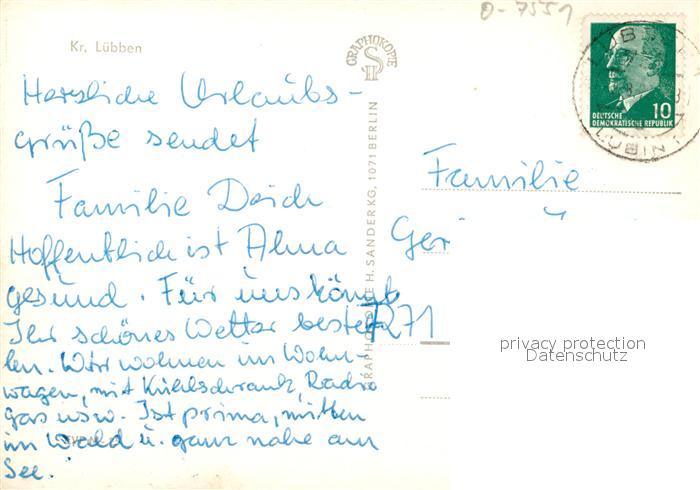 0-7551
Kr. Lübben
GRAPHOKOPIE
Herzliche Urlaubs-
grüße sendet
Familie Deich
Hoffentlich ist Alma
gesund. Für uns könnt
Ihr schönes Wetter bestel-
len. Wir wohnen im Wohn-
wagen, mit Kühlschrank, Radio
Gas usw. Ist prima, mitten
im Wald u. ganz nahe am
See.
GRAPHOKOPIE H. SANDER KG, 1071 BERLIN
10
DEUTSCHE
DEMOKRATISCHE REPUBLIK
Familie
Ger
7271
privacy protection
Datenschutz